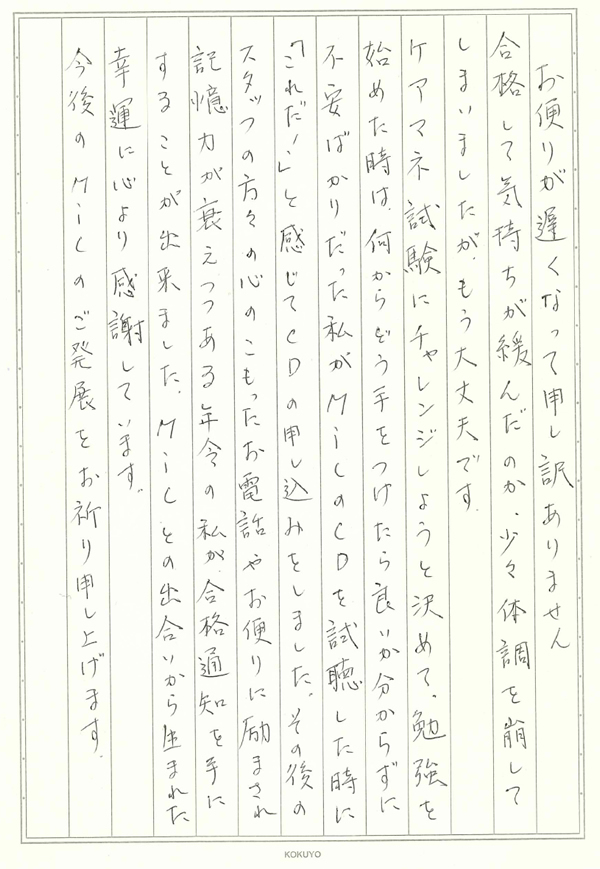 お便りが遅くなって申し訳ありません
合格して気持ちが緩んだのか、少々体調を崩して
しまいましたが、もう大丈夫です。
ケアマネ試験にチャレンジしようと決めて、勉強を
始めた時は、何からどう手をつけたら良いか分からずに
不安ばかりだった私がMicのCDを試聴した時に
「これだ!」と感じてCDの申し込みをしました。その後の
スタッフの方々の心のこもったお電話やお便りに励まされ
記憶力が衰えつつある年令の私が、合格通知を手に
することが出来ました。Micとの出合いから生まれた
幸運に心より感謝しています。
今後のMicのご発展をお祈り申し上げます。
KOKUYO